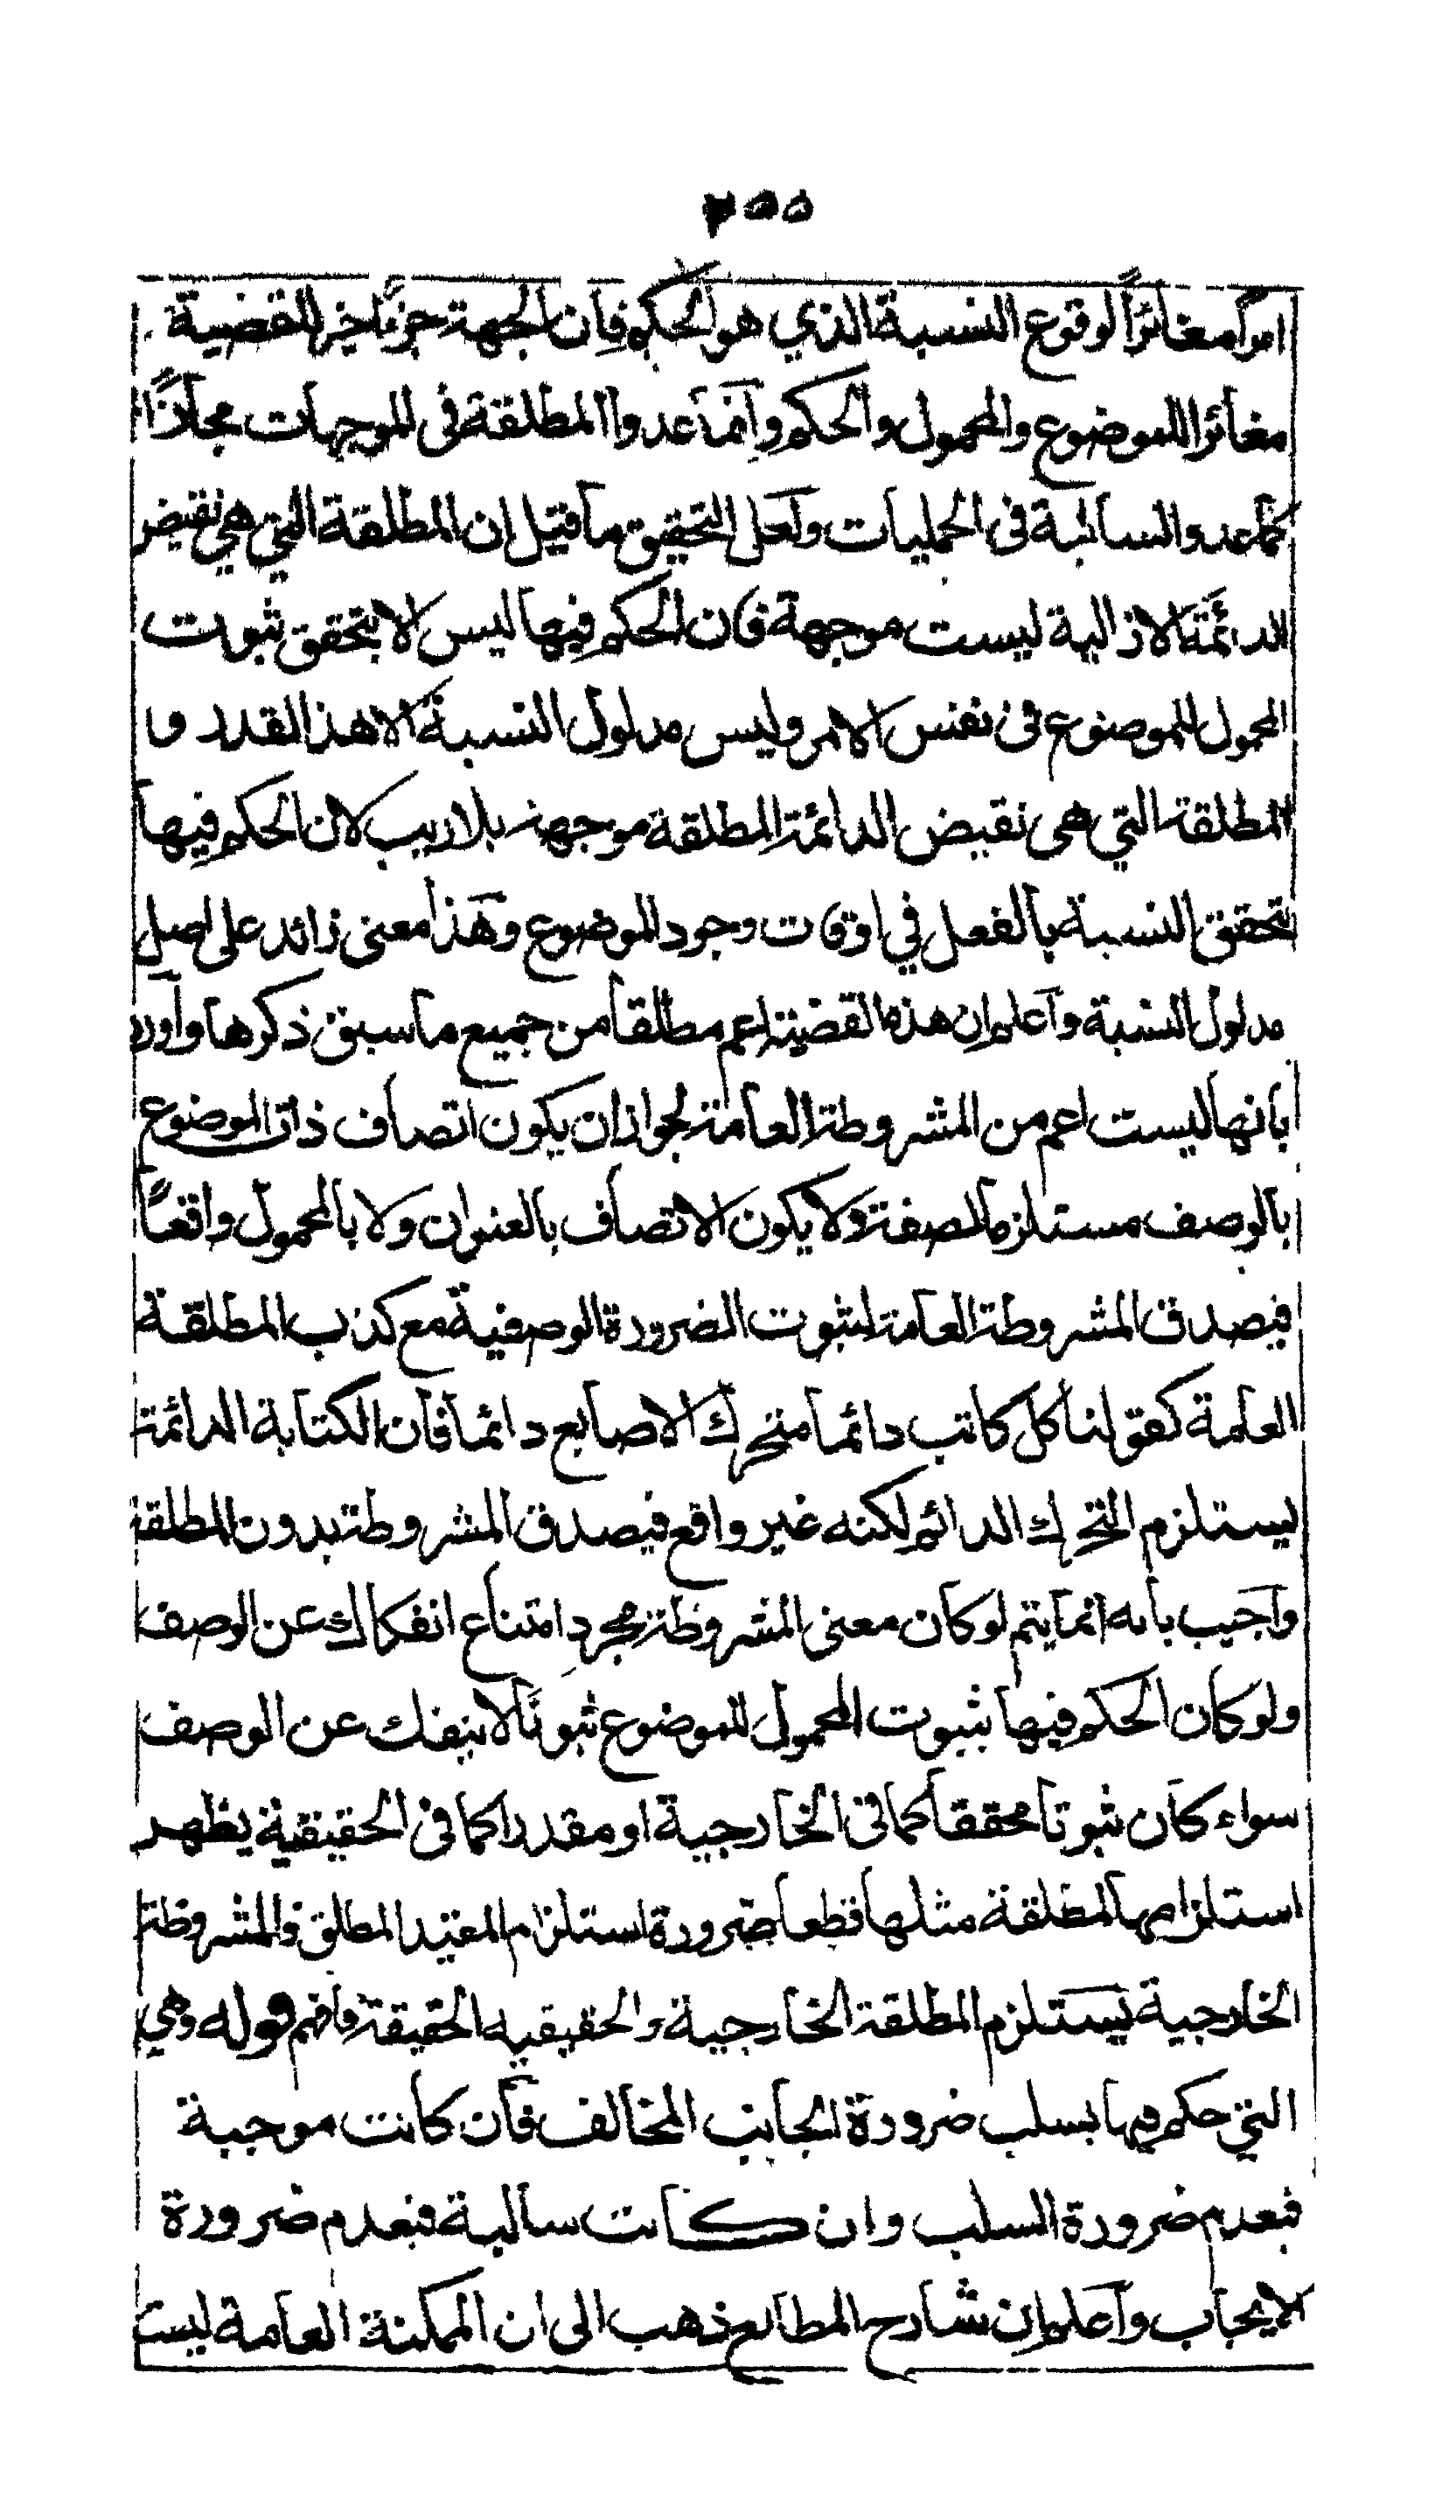 ٢٥٥
امراً مغائراً لوقوع النسبة الذي هو الحكم فان الجهة جزءً اخر للقضية
مغائرا للموضوع والمحمول والحكم وانما عدوا المطلقة في الموجهات مجازًا
كما عدوا السالبة فى الحمليات ولعل التحقيق ما قيل ان المطلقة التي هي نقيض
الدائمة الازالية ليست موجهة فان الحكم فيها ليس الا بتحقق ثبوت
المحمول للموضوع فى نفس الامر وليس مدلول النسبة الا هذا القدر و
المطلقة التي هى نقيض الدائمة المطلقة موجهة بلا ريب لان الحكم فيها
بتحقق النسبة بالفعل في اوقات وجود الموضوع وهذا معنى زائد على اصل
مدلول النسبة واعلم ان هذه القضية اعم مطلقا من جميع ما سبق ذكرها واورد
بانها ليست اعم من المشروطة العامة لجواز ان يكون اتصاف ذات الموضوع
بالوصف مستلزما لصفة ولا يكون الاتصاف بالعنوان ولا بالمحمول واقعاً
فيصدق المشروطة العامة لثبوت الضرورة الوصفية مع كذب المطلقة
العامة كقولنا كل كاتب دائما متحرك الاصابع دائما فان الكتابة الدائمة
يستلزم التحرك الدائم لكنه غير واقع فيصدق المشروطة بدون المطلقة
واجيب بانه انما يتم لو كان معنى المشروطة مجرد امتناع انفكاك عن الوصف
ولو كان الحكم فيها بثبوت المحمول للموضوع ثبوتًا لا ينفك عن الوصف
سواء كان ثبوتا محققا كما فى الخارجية او مقدرا كما فى الحقيقية يظهر
استلزامها المطلقة مثلها قطعا ضرورة استلزام المقيد المطلق فالمشروطة
الخارجية يستلزم المطلقة الخارجية والحقيقيه الحقيقة فافهم قوله وهي
التي حكم فيها بسلب ضرورة الجانب المخالف فان كانت موجبة
فبعدم ضرورة السلب وان كانت سالبة فبعدم ضرورة
الايجاب واعلم ان شارح المطالع ذهب الى ان الممكنة العامة ليست